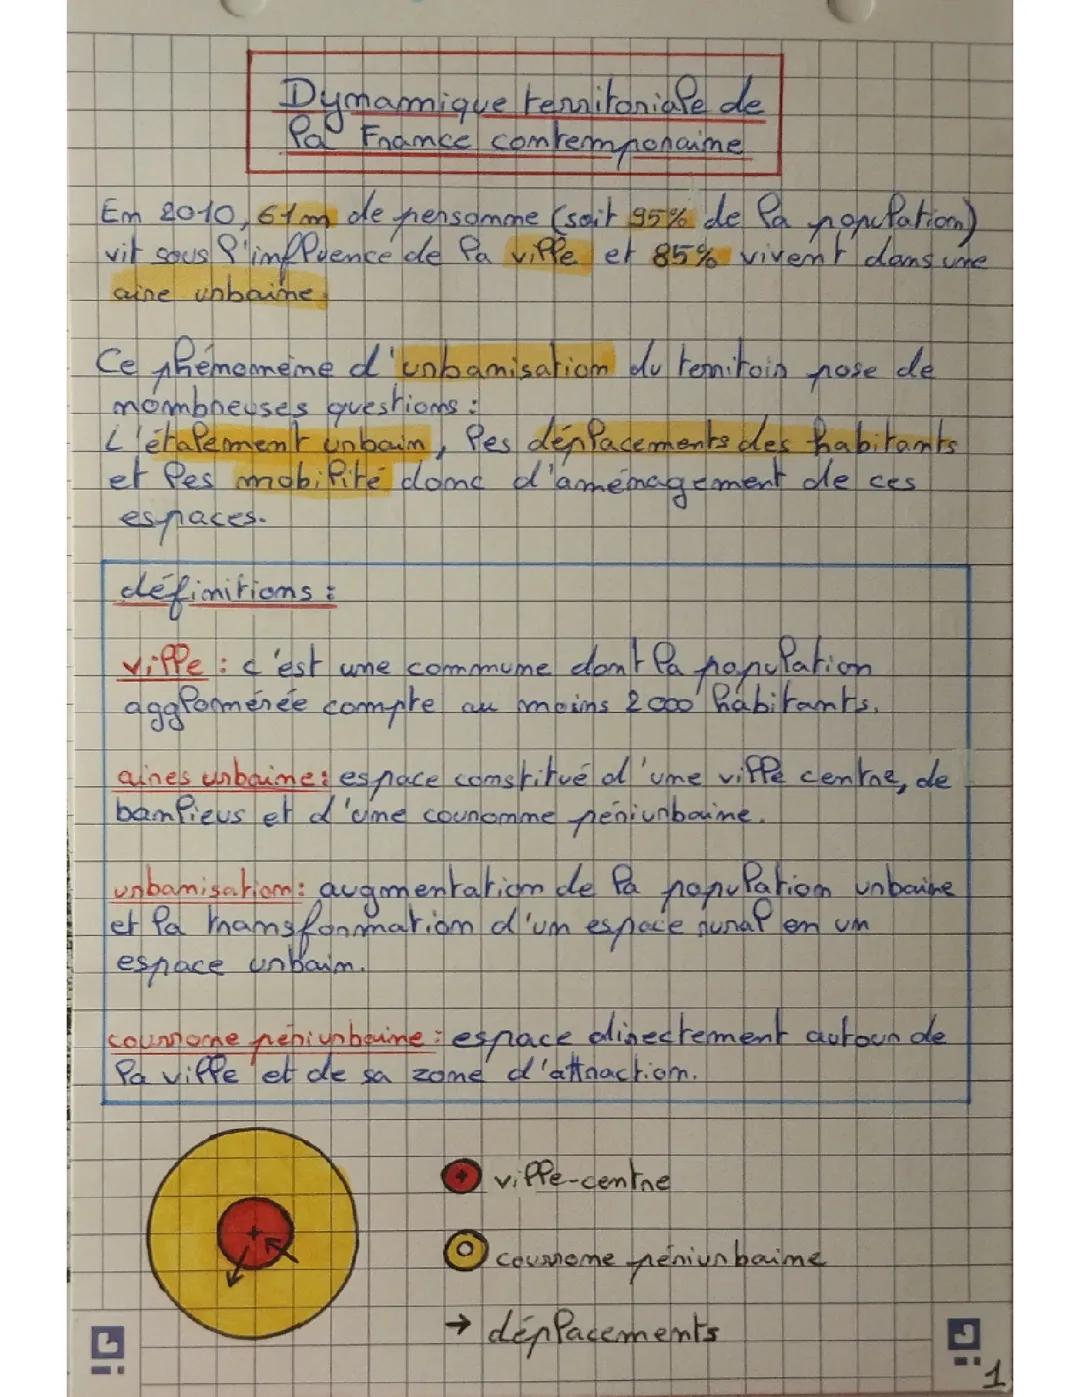 Dynamique territoriale de
la France contemporaine
En 2010, 61m de personne (soit 95% de la population)
vit sous l'influence de la ville et 85% vivent dans une
aire urbaine.
Ce phénomène d'urbanisation du territoir pose de
nombreuses questions :
L'étalement urbain, les déplacements des habitants
et les mobilité donc d'aménagement de ces
espaces.
définitions :
ville : c'est une commune dont la population
agglomérée compte au moins 2 000 habitants.
aires urbaine : espace constitué d'une ville centre, de
banlieus et d'une couronne périurbaine.
urbanisation : augmentation de la population urbaine
et la transformation d'un espace rural en un
espace urbain.
couronne périurbaine : espace directement autour de
la ville et de sa zone d'attraction.
ville-centre
couronne périurbaine
→ déplacements
1